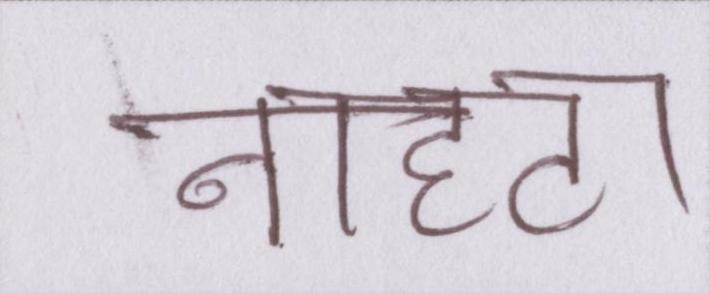 नाहटा